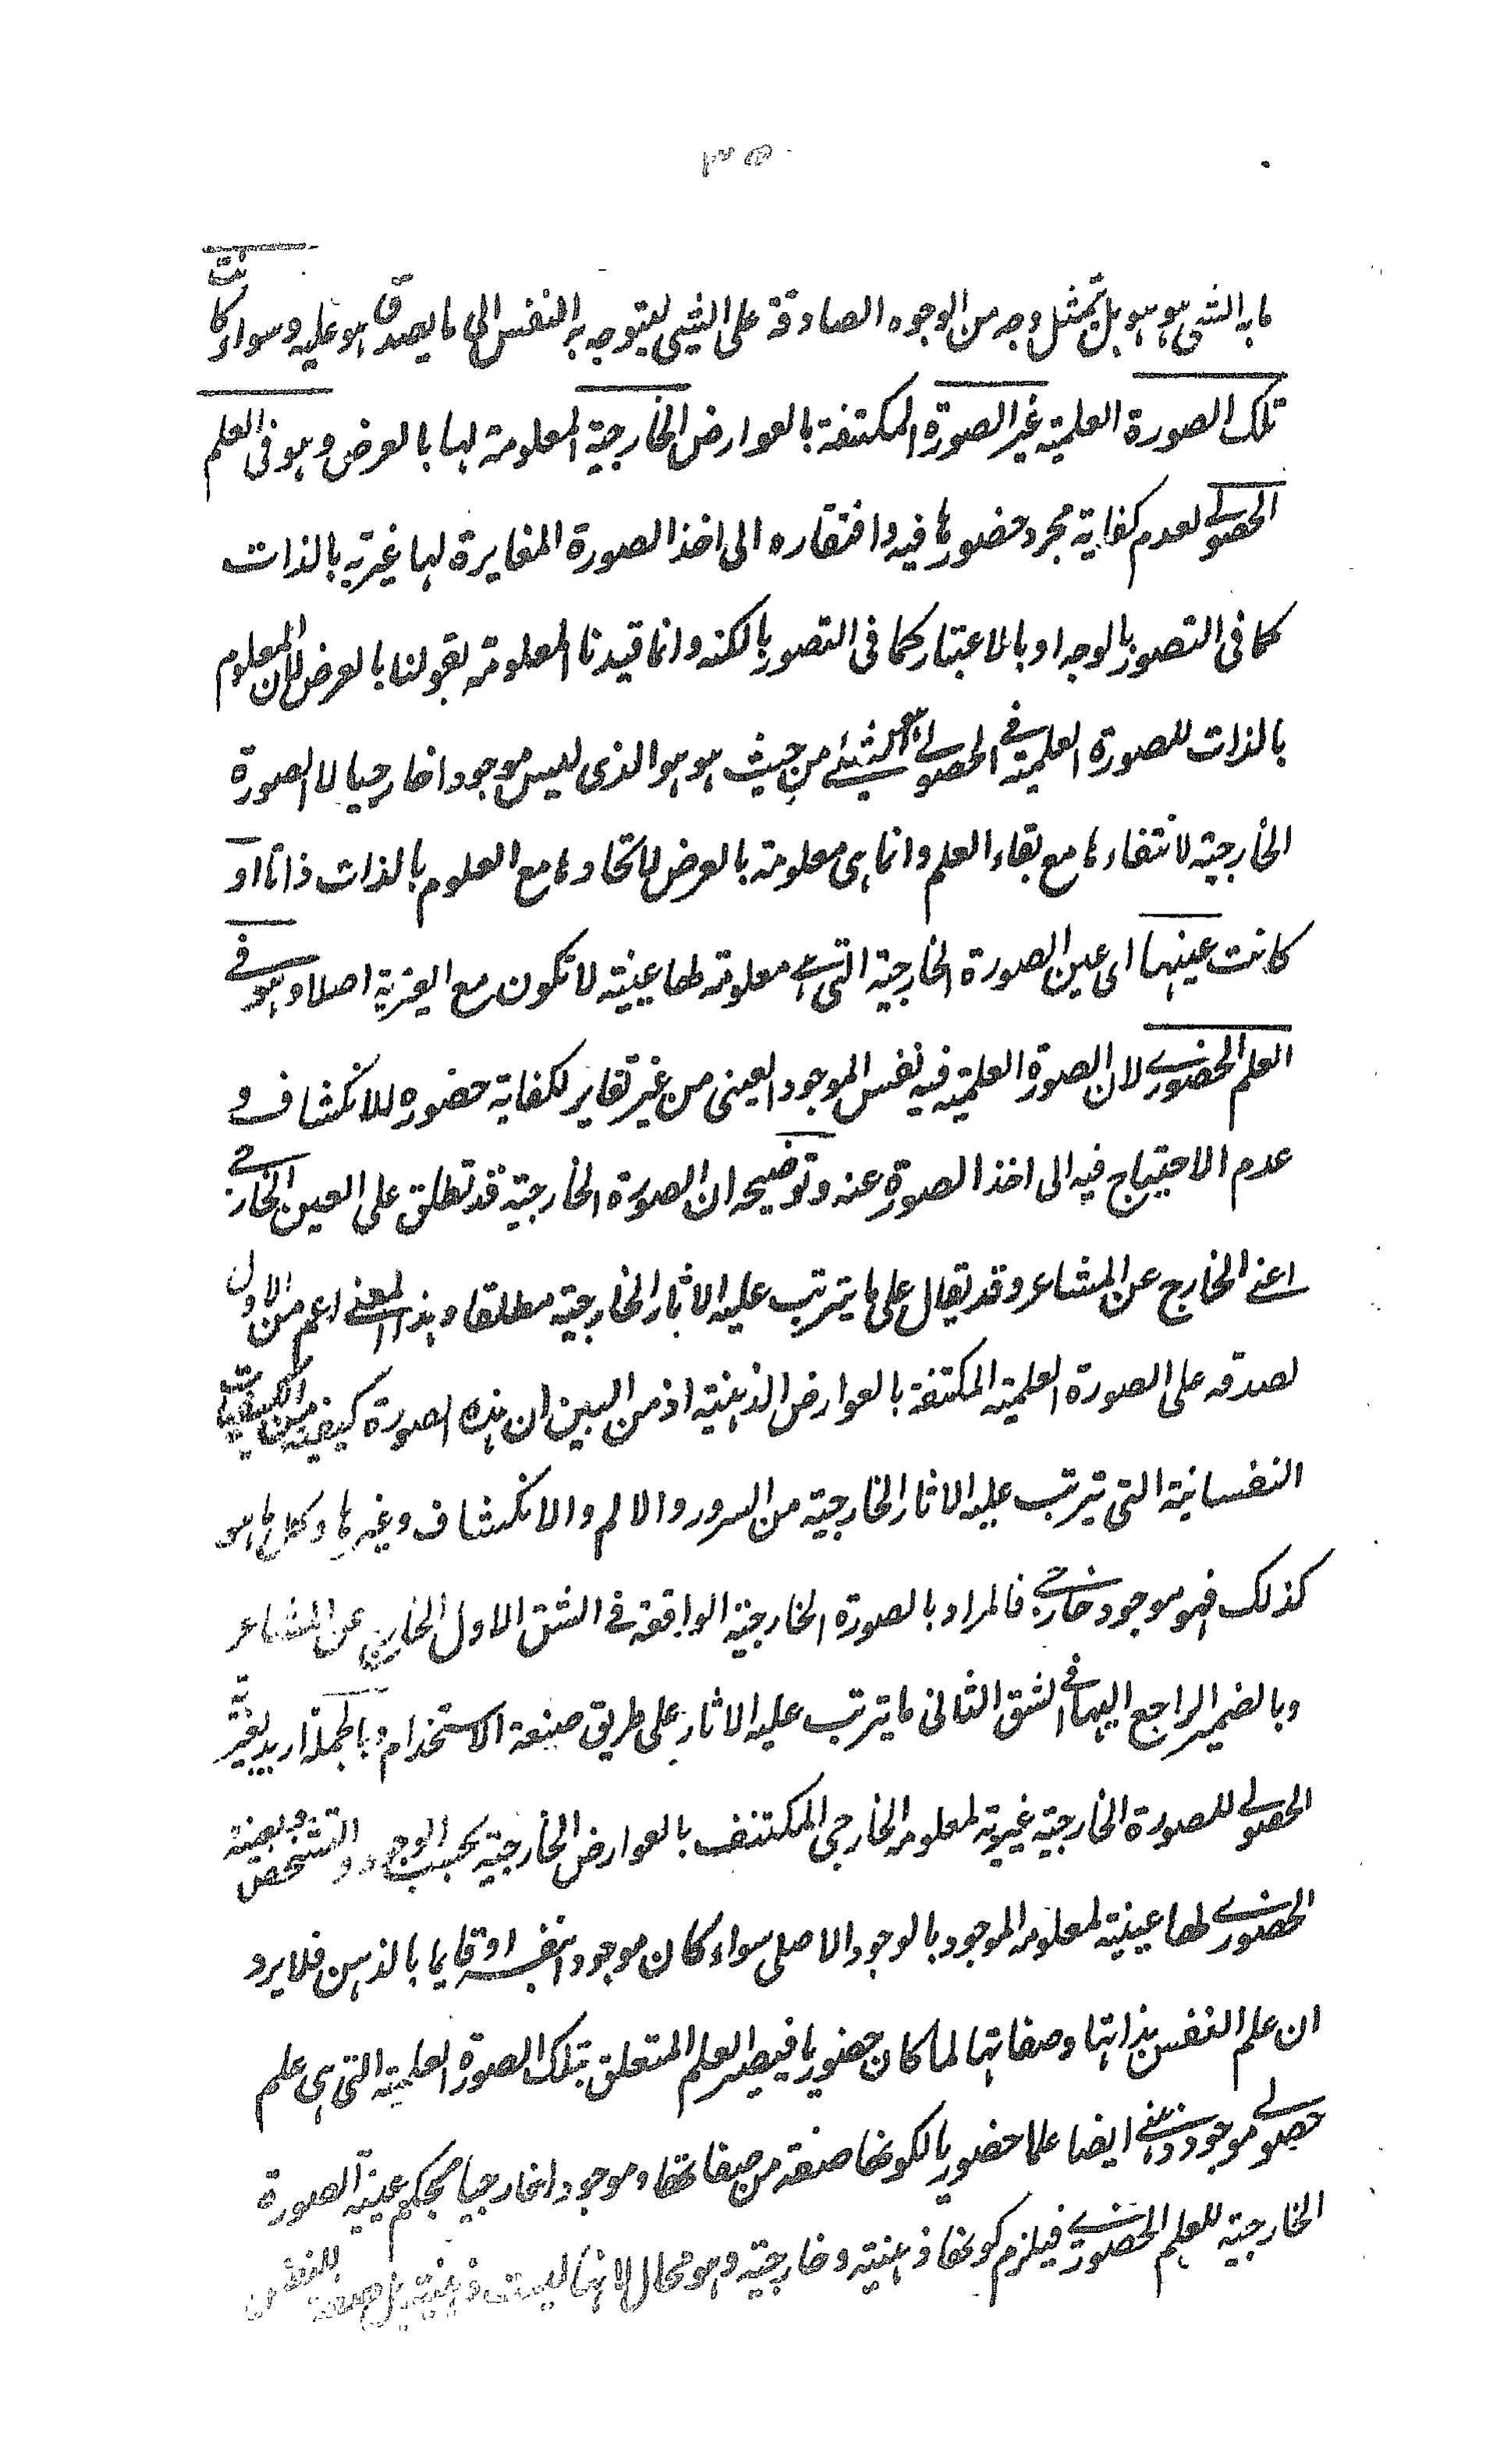 ما به الشئ هو هو بل تمثل وجه من الوجوه الصادقة على الشئ ليتوجه به النفس الى ما يصدق هو عليه وسواء كانت
تلك الصورة العلمية غير الصورة المكتنفة بالعوارض الخارجية المعلومة لها بالعرض وهو فى العلم
الحصولے لعدم كفاية مجرد حضورها فيه وافتقاره الى اخذ الصورة المغايرة لها غيرية بالذات
كما فى التصور بالوجه او بالاعتبار كما فى التصور بالكنه وانما قيدنا المعلومة بقولنا بالعرض لان المعلوم
بالذات للصورة العلمية فے الحصولے هو الشئے من حيث هو هو الذى ليس موجودا خارجيا لا الصورة
الخارجية لانتفاءها مع بقاء العلم وانما هى معلومة بالعرض لاتحادها مع المعلوم بالذات ذاتا او
كانت عينها اى عين الصورة الخارجية التى هے معلومة لها عينية لا تكون مع الغيرية اصلا وهو فے
العلم الحضورے لان الصورة العلمية فيه نفس الموجود العينى من غير تغاير لكفاية حضوره للانكشاف و
عدم الاحتياج فيه الى اخذ الصورة عنه وتوضيحه ان الصورة الخارجية قد تطلق على العين الخارجے
اعنے الخارج عن المشاعر وقد تقال على ما يترتب عليه الاثار الخارجية مطلقا وهذا المعنے اعم من الاول
لصدقه على الصورة العلمية المكتنفة بالعوارض الذهنية اذ من البين ان هذه الصورة كيفية من الكيفيات
النفسانية التى يترتب عليه الاثار الخارجية من السرور والالم والانكشاف وغيرها وكل ما هو
كذلك فهو موجود خارجے فالمراد بالصورة الخارجية الواقعة فے الشق الاول الخارج عن المشاعر
وبالضمير الراجع اليها فے الشق الثانى ما يترتب عليه الاثار على طريق صنعة الاستخدام وبالجملة اريد بغيرية
الحصولے للصورة الخارجية غيرية لمعلومه الخارجى المكتنف بالعوارض الخارجية بحسب الوجود والتشخص وبعينية
الحضورے لها عينية لمعلومه الموجود بالوجود الاصلى سواء كان موجودا بنفسه او قايما بالذهن فلا يرد
ان علم النفس بذاتها وصفاتها لما كان حضوريا فيصير العلم المتعلق بتلك الصورة العلمية التى هى علم
حصولے موجود ذهنے ايضا علما حضوريا لكونها صفة من صفاتها وموجودا خارجيا بحكم عينية الصورة
الخارجية للعلم الحضورے فيلزم كونها ذهنية وخارجية وهو محال لانها ليست ذهنية بل صفة للنفس